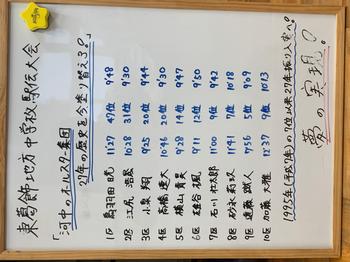 東葛飾地方中学校駅伝大会
「河中のホルスター集団
27年の歴史を今塗り替える?」
1区 11'27 47位 9'48
2区 江尻 10'28 31位 9'30
3区 小泉 翔 9'25 20位 9'44
4区 髙橋 遼大 10'46 20位 9'30
5区 横山 青昊 9'28 14位 9'47
6区 雄谷 颯 9'11 12位 9'50
7区 石川 11'00 9位 9'42
8区 11'41 7位 10'18
9区 遠藤 誠人 7'56 5位 9'09
10区 加藤 大雅 12'37 9位 10'13
1995年(平成7年)の7位以来27年振り入賞へ?
夢の実現?